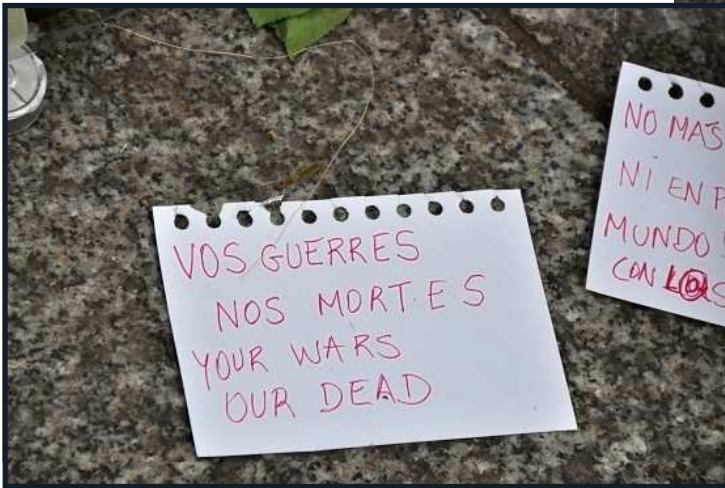 VOS GUERRES
NOS MORT.E.S
YOUR WARS
OUR DEAD
NO MAS
NI EN
MUNDO
CON L@S